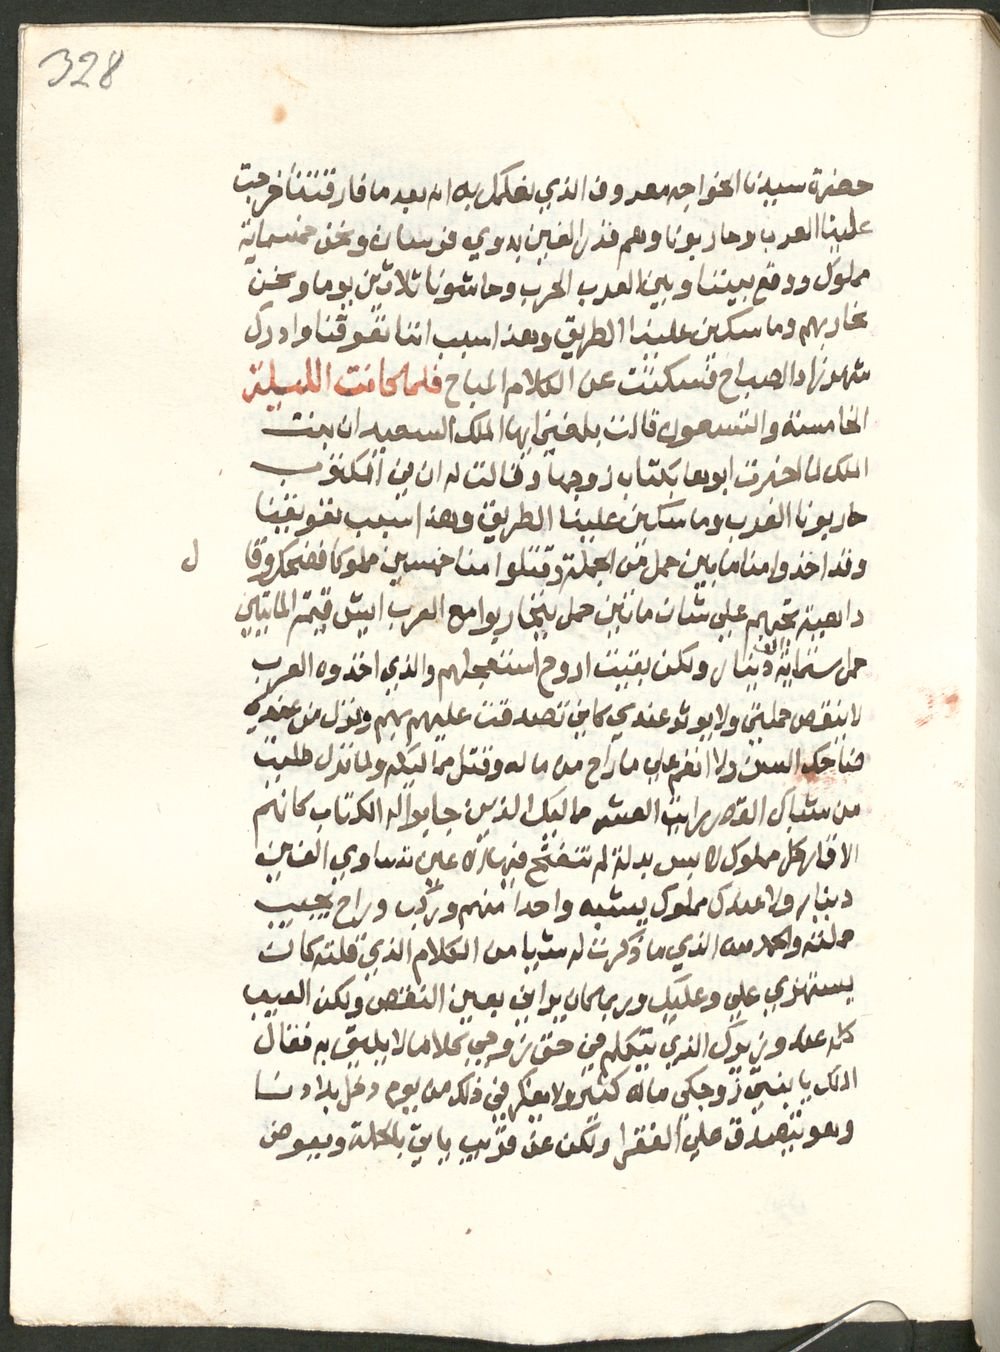 328
حضرة سيدنا الخواجه معروف الذي نعلمك به ان بعد ما فارقتنا خرجت
علينا العرب وحاربونا وهم قدر الفين بدوي فرسان ونحن خمسماية
مملوك ووقع بيننا وبين العرب الحرب وحاشونا ثلاثين يوما ونحن
نحاربهم وماسكين علينا الطريق وهذا سبب اننا تعوقنا وادرك
شهرزاد الصباح فسكتت عن الكلام المباح فلما كانت الليلة
الخامسة والتسعون قالت بلغني ايها الملك السعيد ان بنت
الملك لما اخبرت ابوها بكتاب زوجها وقالت له ان في المكتوب
حاربونا العرب وماسكين علينا الطريق وهذا سبب تعويقنا
وقد اخذوا منا مايين حمل من الحملة وقتلوا منا خمسين مملوكا فضحك وقا
ل
داهية تخيبهم علي شان ماتين حمل يتحاربوا مع العرب ايش قيمة المايتين
حمل ستماية الف دينار ولكن بقيت اروح استعجلهم والذي اخذوه العرب
لا ينقص حملتي ولا يوثر عندي كاني تصدقت عليهم بهم ونزل من عندي
ضاحك السن ولا انغم علي ما راح من ماله وقتل مماليكه ولما نزل طليت
من شباك القصر رايت العشر مماليك الذين جابوا له الكتاب كانهم
الاقمار كل مملوك لابس بدلة تساوي الفين
دينار ولا عندك مملوك يشبه واحدا منهم وركب وراح يجيب
حملته والحمد لله الذي ما ذكرت له شيا من الكلام الذي قلته كانت
يستهزي علي وعليك وربما كان يراني بعين النقص ولكن العيب
كله عند وزيرك الذي يتكلم في حق زوجي كلاما لا يليق به فقال
الملك يا بنتي زوجكي ماله كثير ولا يفكر في ذلك من يوم دخل بلادنا
وهو يتصدق علي الفقرا ولكن عن قريب ياتي بالحملة ويعوض